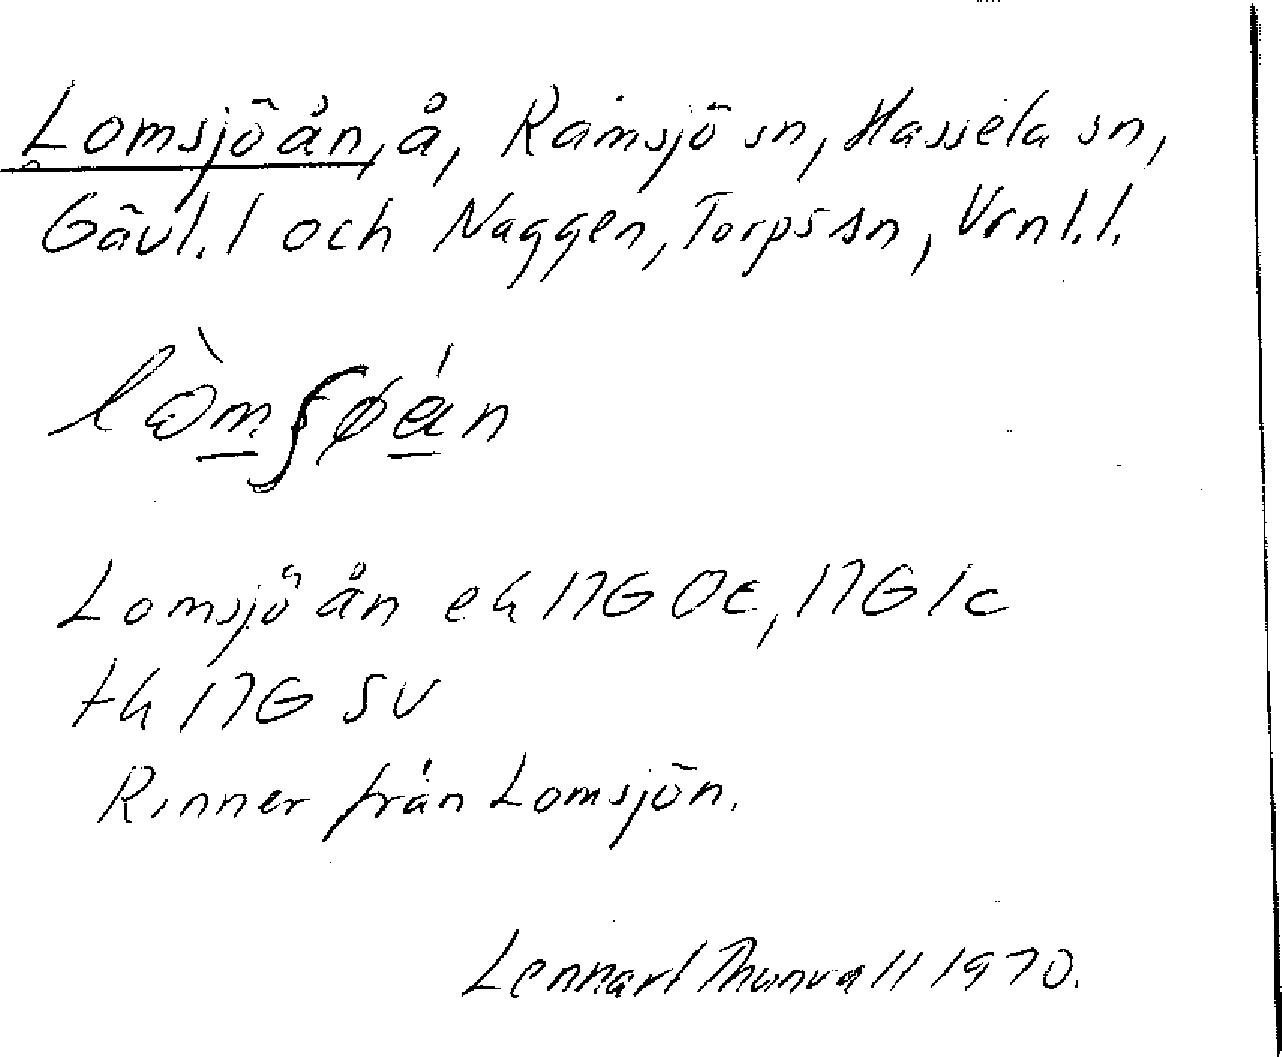 Lomsjöån, å, Ramsjö sn, Hassela sn,
Gävl. l och Naggen, Torps sn, Vrnl. l.
Lomsjöån ek 17G 0c, 17G 1c
tk 17G SV
Rinner från Lomsjön.
Lennart Thunvall 1970.